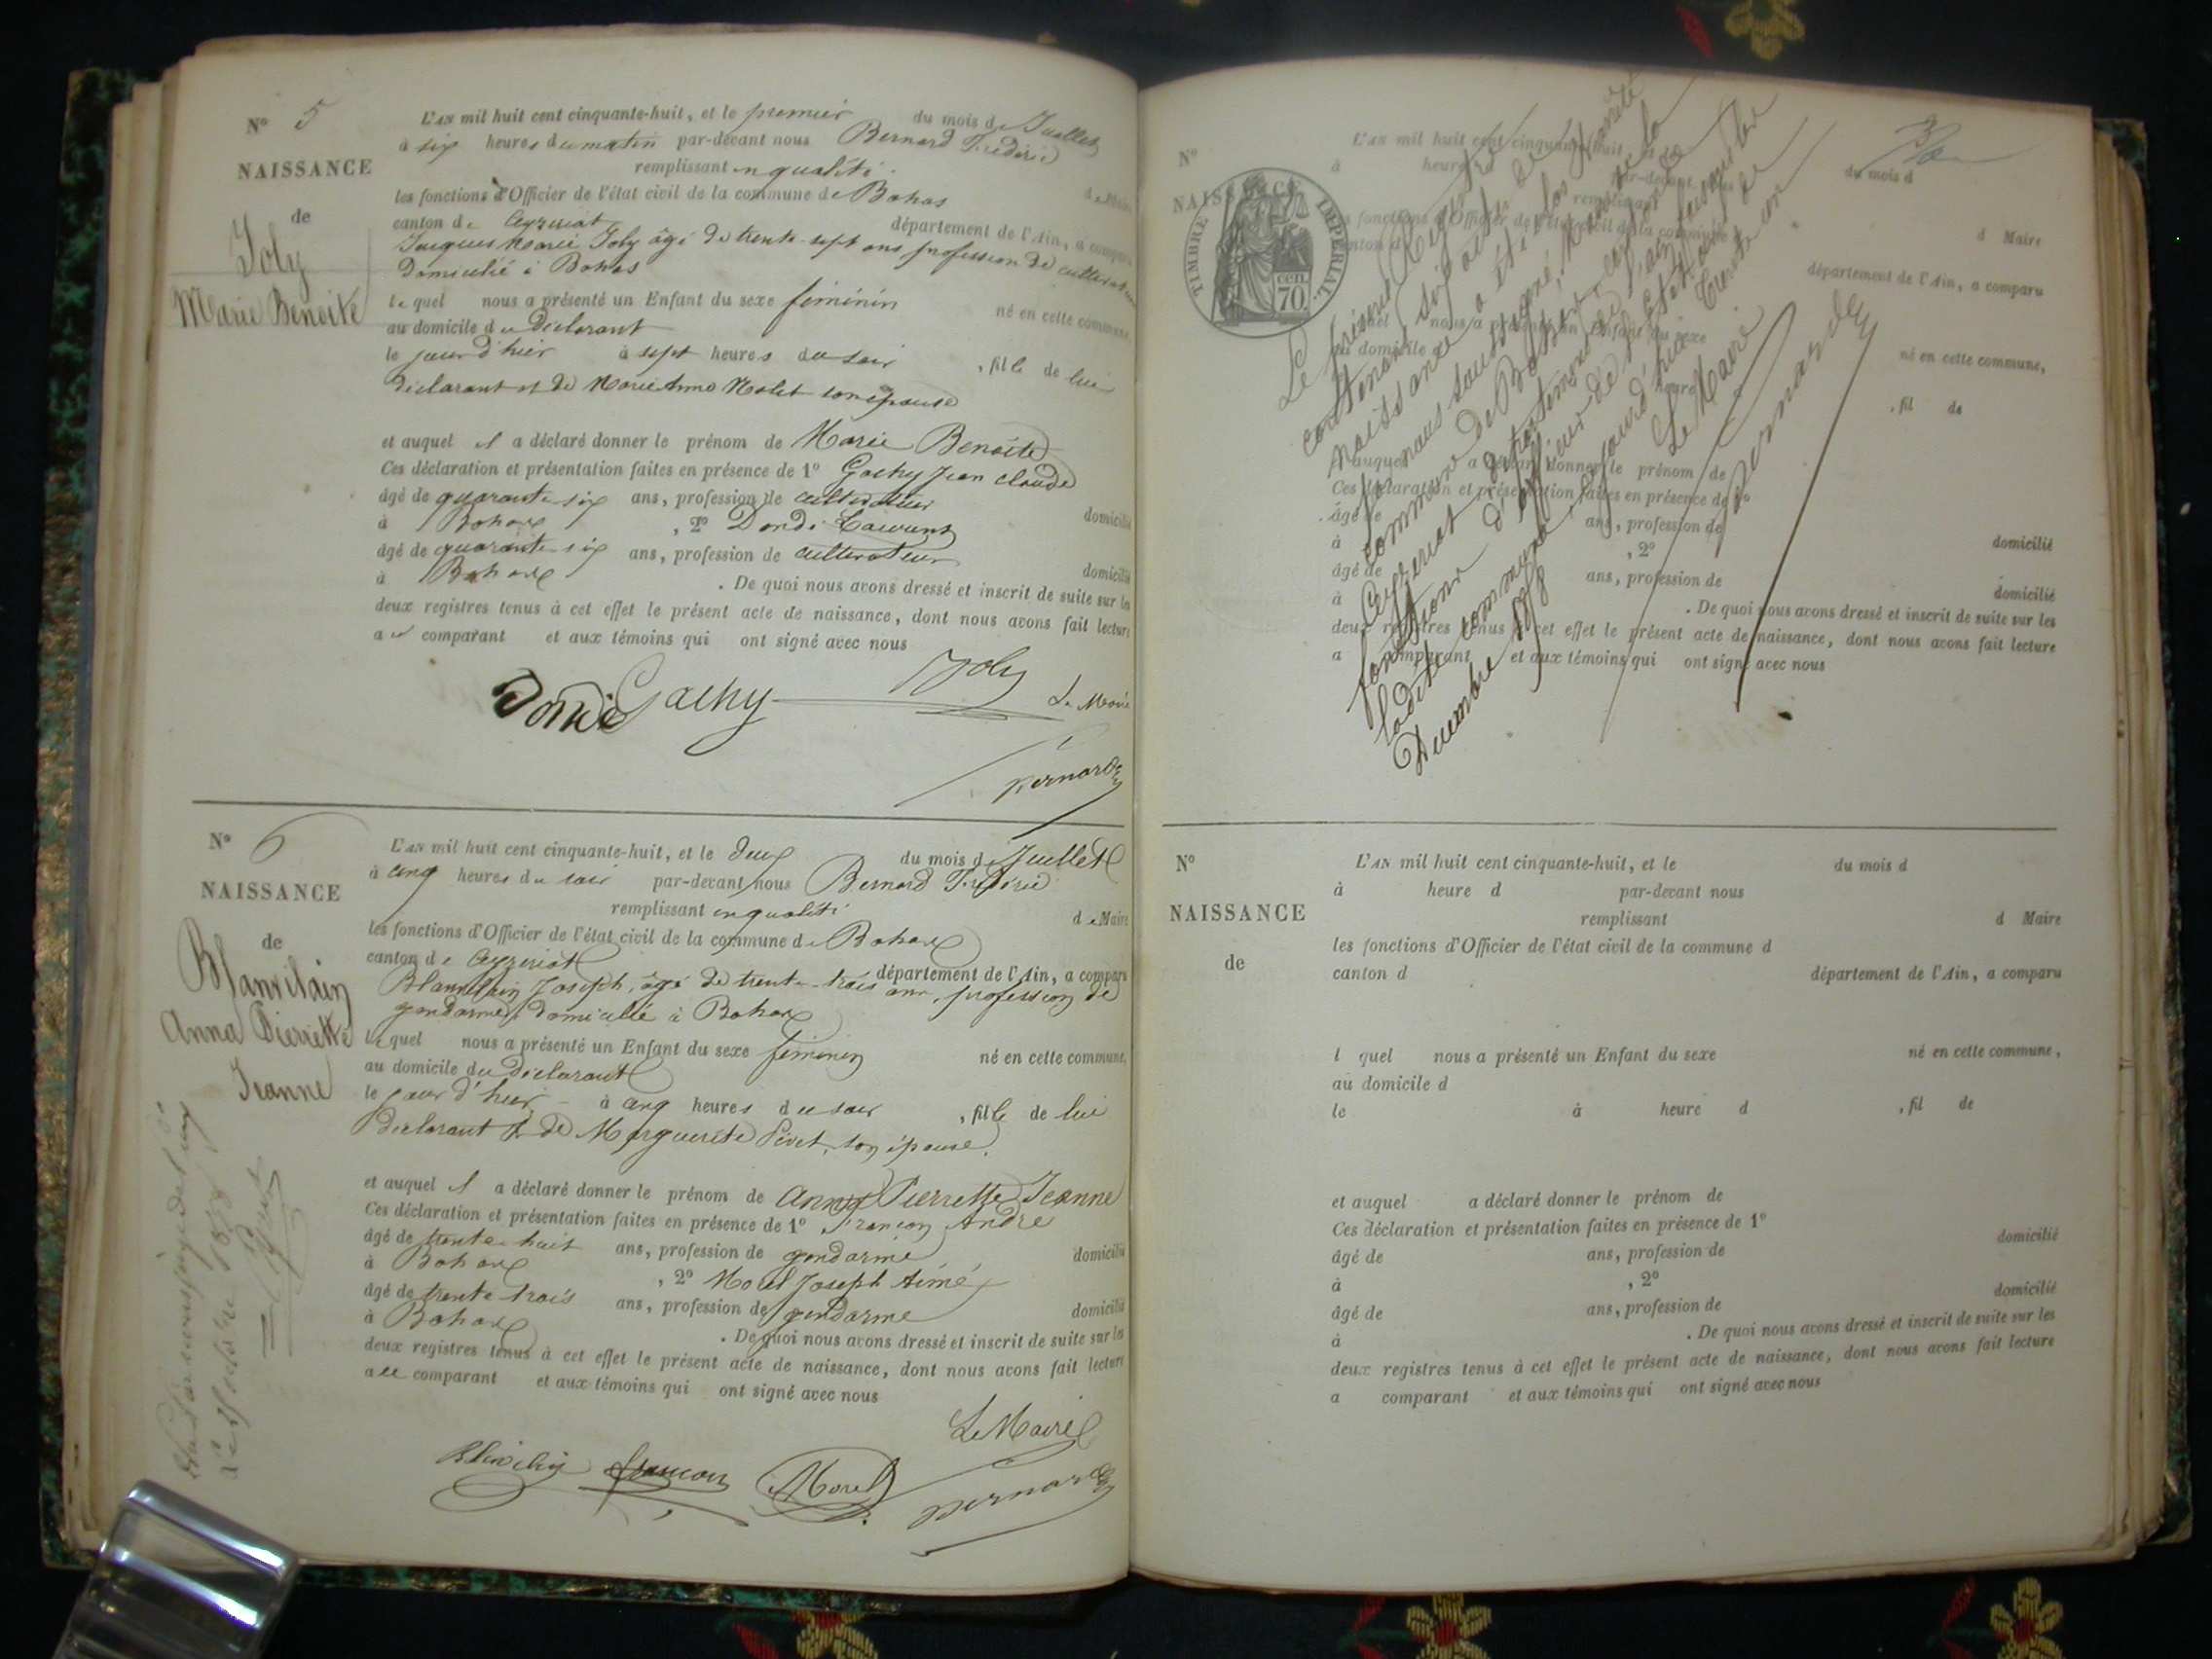 N° 5
NAISSANCE
de
Joly
Marie Benoite
L'AN mil huit cent cinquante-huit, et le premier du mois de Juillet
à six heures du matin par-devant nous Bernard Frédéric
remplissant en qualité de Maire
les fonctions d'Officier de l'état civil de la commune de Bohas
canton de Ceyzeriat département de l'Ain, a comparu
Jacques Marie Joly âgé de trente-sept ans profession de cultivateur
domicilié à Bohas
lequel nous a présenté un Enfant du sexe féminin né en cette commune,
au domicile du déclarant
le jour d'hier à sept heures du soir, fille de lui
déclarant et de Marie Anne Molet son épouse
et auquel il a déclaré donner le prénom de Marie Benoite
Ces déclaration et présentation faites en présence de 1° Gachy Jean Claude
âgé de quarante-six ans, profession de cultivateur domicilié
à Bohas, 2° Dondi Laurent
âgé de quarante-six ans, profession de cultivateur domicilié
à Bohas. De quoi nous avons dressé et inscrit de suite sur les
deux registres tenus à cet effet le présent acte de naissance, dont nous avons fait lecture
au comparant et aux témoins qui ont signé avec nous
Gachy Joly Le Maire
Bernard
N° 6
NAISSANCE
de
Blanvilain
Anna Pierrette
Jeanne
L'AN mil huit cent cinquante-huit, et le deux du mois de Juillet
à cinq heures du soir par-devant nous Bernard Frédéric
remplissant en qualité de Maire
les fonctions d'Officier de l'état civil de la commune de Bohas
canton de Ceyzeriat département de l'Ain, a comparu
Blanvilain Joseph, âgé de trente-trois ans, profession de
gendarme, domicilié à Bohas
lequel nous a présenté un Enfant du sexe féminin né en cette commune,
au domicile du déclarant
le jour d'hier à cinq heures du soir, fille de lui
déclarant & de Marguerite Pivet, son épouse.
et auquel il a déclaré donner le prénom de Anna Pierrette Jeanne
Ces déclaration et présentation faites en présence de 1° Francon André
âgé de trente-huit ans, profession de gendarme domicilié
à Bohas, 2° Morel Joseph Aimé
âgé de trente-trois ans, profession de gendarme domicilié
à Bohas. De quoi nous avons dressé et inscrit de suite sur les
deux registres tenus à cet effet le présent acte de naissance, dont nous avons fait lecture
au comparant et aux témoins qui ont signé avec nous
Le Maire
Blanvilain Francon Morel Bernard
N°
NAISSANCE
TIMBRE IMPERIAL
70 cen
L'AN mil huit cent cinquante-huit, et le du mois d
à heure d par-devant nous
remplissant d Maire
les fonctions d'Officier de l'état civil de la commune d
canton d département de l'Ain, a comparu
l quel nous a présenté un Enfant du sexe né en cette commune,
au domicile d
le à heure d, fil de
et auquel a déclaré donner le prénom de
Ces déclaration et présentation faites en présence de 1°
âgé de ans, profession de domicilié
à, 2°
âgé de ans, profession de domicilié
à. De quoi nous avons dressé et inscrit de suite sur les
deux registres tenus à cet effet le présent acte de naissance, dont nous avons fait lecture
a comparant et aux témoins qui ont signé avec nous
Le présent Registre
contenant six actes de
naissance a été clos et arrêté
par nous soussigné, Maire de la
commune de Bohas, canton de
Ceyzeriat département de l'ain, faisant les
fonctions d'officier de l'Etat civil de
ladite commune aujourd'hui trente un
Decembre 1858
Le Maire
Bernard
N°
NAISSANCE
de
L'AN mil huit cent cinquante-huit, et le du mois d
à heure d par-devant nous
remplissant d Maire
les fonctions d'Officier de l'état civil de la commune d
canton d département de l'Ain, a comparu
l quel nous a présenté un Enfant du sexe né en cette commune,
au domicile d
le à heure d, fil de
et auquel a déclaré donner le prénom de
Ces déclaration et présentation faites en présence de 1°
âgé de ans, profession de domicilié
à, 2°
âgé de ans, profession de domicilié
à. De quoi nous avons dressé et inscrit de suite sur les
deux registres tenus à cet effet le présent acte de naissance, dont nous avons fait lecture
a comparant et aux témoins qui ont signé avec nous